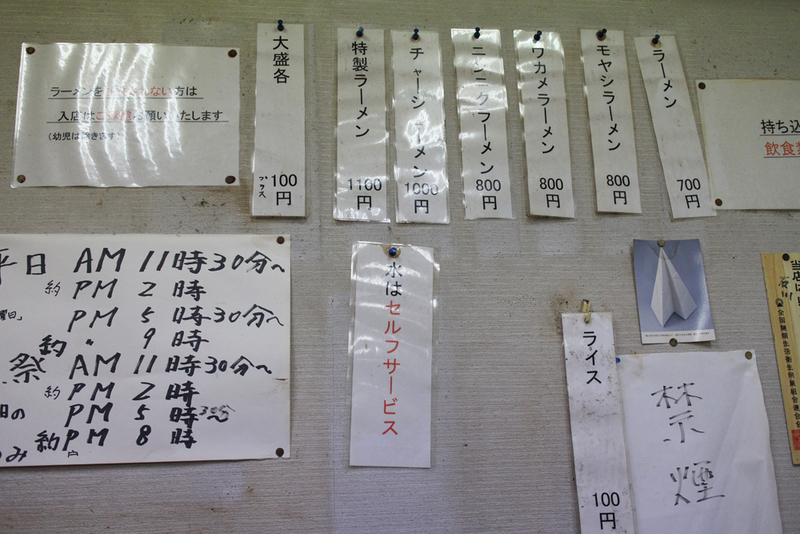 ラーメンを
ない方は
入店は
願いいたします
(幼児は除きます)
大盛各
プラス
100円
特製ラーメン
1100円
チャーシューメン
1000円
ニンニクラーメン
800円
ワカメラーメン
800円
モヤシラーメン
800円
ラーメン
700円
持ち込
飲食
平日 AM 11時30分〜
約 PM 2時
PM 5時30分〜
約 〃 9時
祭 AM 11時30分〜
約 PM 2時
日の PM 5時30分〜
のみ 約PM 8時
水はセルフサービス
ライス
100円
禁煙
当店は